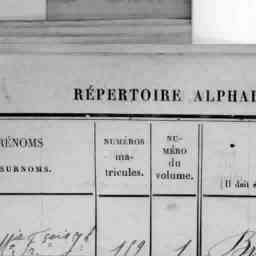 RÉPERTOIRE ALPHA
RÉNOMS
SURNOMS.
NUMÉROS
ma-
tricules.
NU-
MÉRO
du
volume.
(Il doit ê
159 1